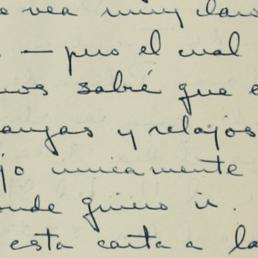 e vea muy claro
— pero el cual
mos sabré que e
anjas y relajos
jo unicamente
onde quiero ir.
esta carta a la